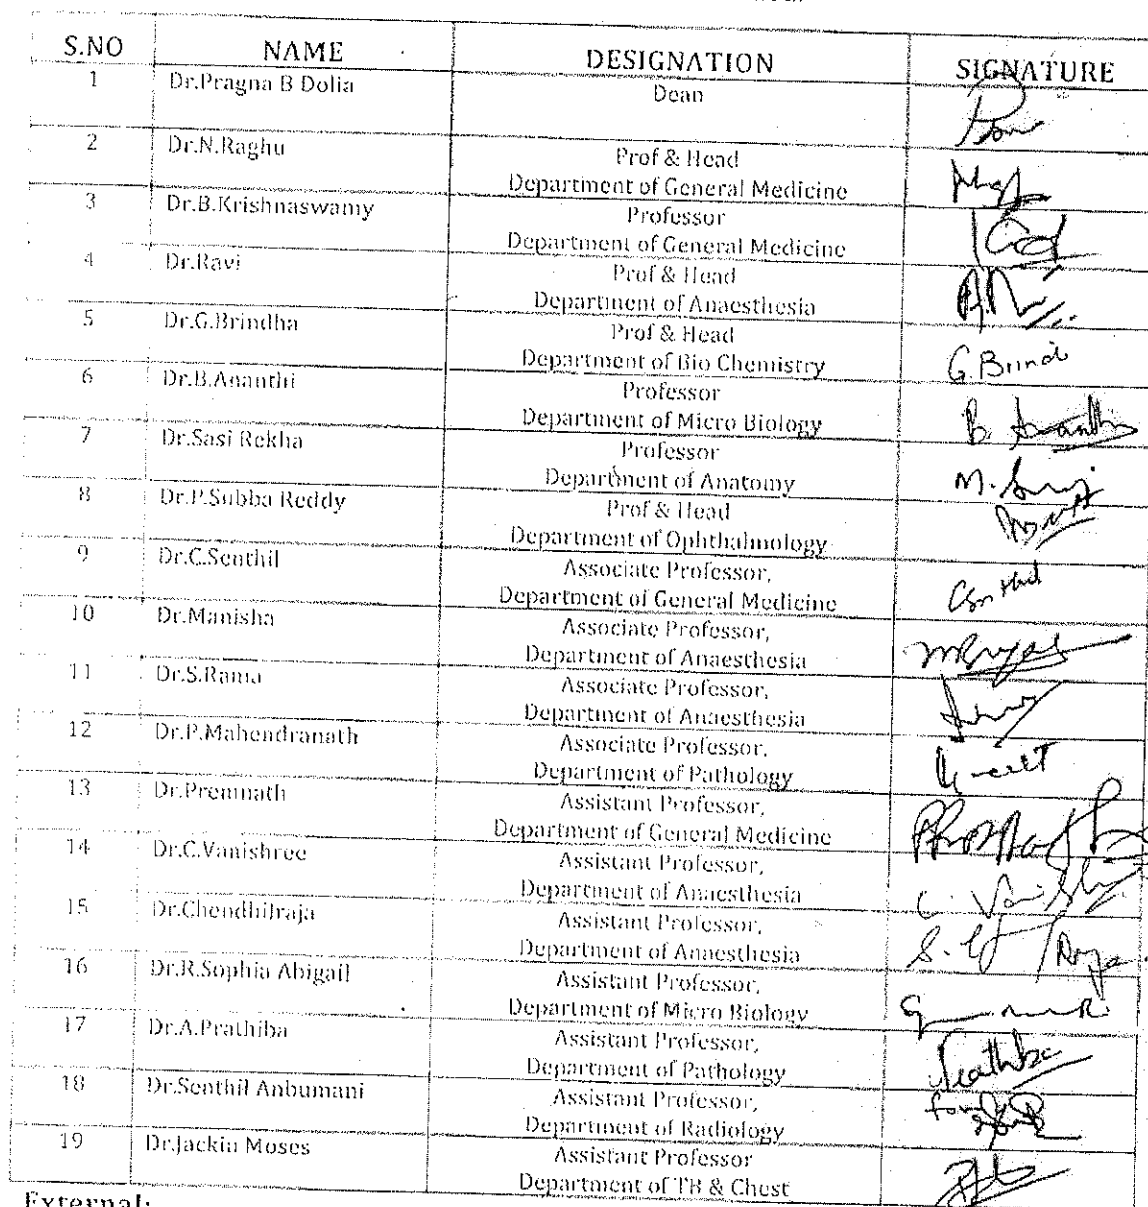 S.NO NAME DESIGNATION SIGNATURE
1 Dr.Pragna B Dolia Dean
2 Dr.N.Raghu Prof & Head
Department of General Medicine
3 Dr.B.Krishnaswamy Professor
Department of General Medicine
4 Dr.Ravi Prof & Head
Department of Anaesthesia
5 Dr.G.Brindha Prof & Head
Department of Bio Chemistry G. Brind
6 Dr.B.Ananthi Professor
Department of Micro Biology B. Ananthi
7 Dr.Sasi Rekha Professor
Department of Anatomy
8 Dr.P.Subba Reddy Prof & Head
Department of Ophthalmology
9 Dr.C.Senthil Associate Professor,
Department of General Medicine
10 Dr.Manisha Associate Professor,
Department of Anaesthesia
11 Dr.S.Rama Associate Professor,
Department of Anaesthesia
12 Dr.P.Mahendranath Associate Professor,
Department of Pathology
13 Dr.Premnath Assistant Professor,
Department of General Medicine
14 Dr.C.Vanishree Assistant Professor,
Department of Anaesthesia
15 Dr.Chendhilraja Assistant Professor,
Department of Anaesthesia
16 Dr.R.Sophia Abigail Assistant Professor,
Department of Micro Biology
17 Dr.A.Prathiba Assistant Professor,
Department of Pathology
18 Dr.Senthil Anbumani Assistant Professor, for
Department of Radiology
19 Dr.Jackin Moses Assistant Professor
Department of TB & Chest
External: